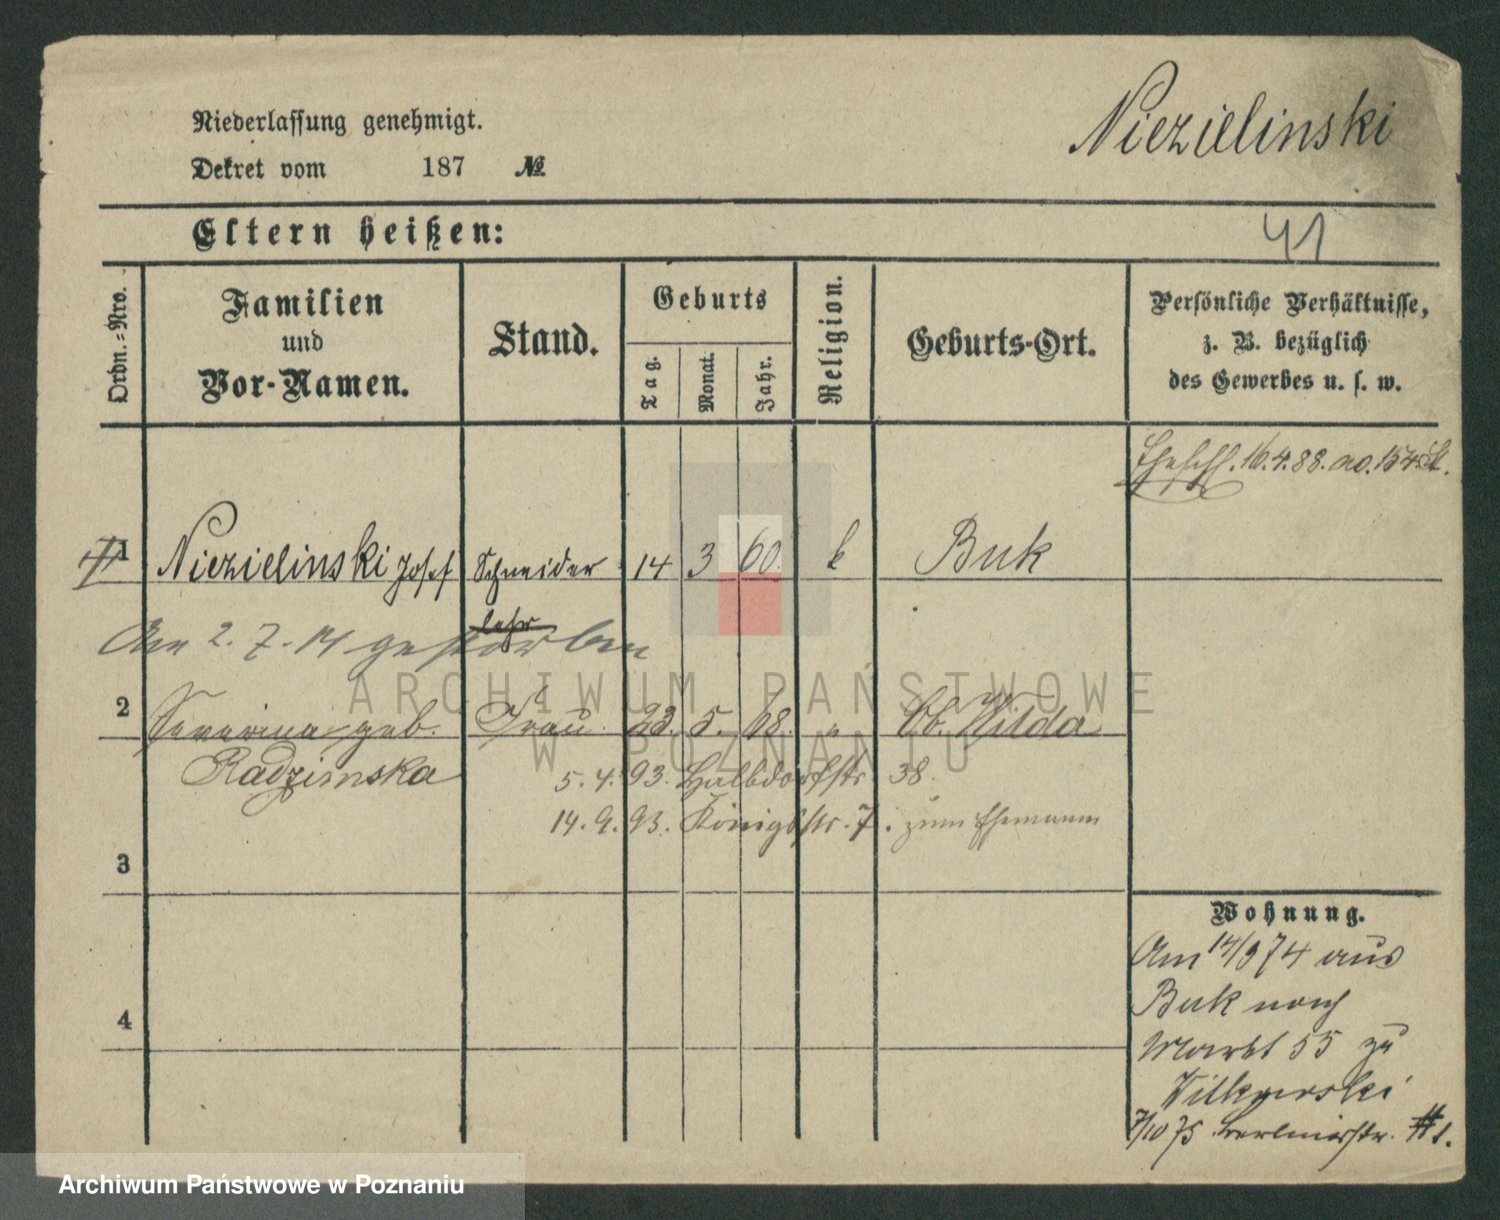 Niederlassung genehmigt.
Dekret vom 187 №
Niezielinski
Eltern heißen:
41
Ordn.=Nro.
Familien und Vor-Namen.
Stand.
Geburts
Tag.
Monat.
Jahr.
Religion.
Geburts-Ort.
Persönliche Verhältnisse,
z. B. bezüglich
des Gewerbes u. s. w.
Eheschl. 16.4.88. no. 154
1 Niezielinski Josef Schneider 14 3 60. k Buk
lehr
Am 2.7.14 gestorben
2 Severina geb. Frau 23. 5. 68. " Ob. Wilda
Radzimska
5.4.93. Halbdorfstr. 38.
14.9.93. Königsstr. 7. zum Ehemann
3
4
Wohnung.
Am 14/3 74 aus
Buk nach
Markt 55 zu
7/10 75 Berlinerstr. 1.
ARCHIWUM PAŃSTWOWE
W POZNANIU
Archiwum Państwowe w Poznaniu